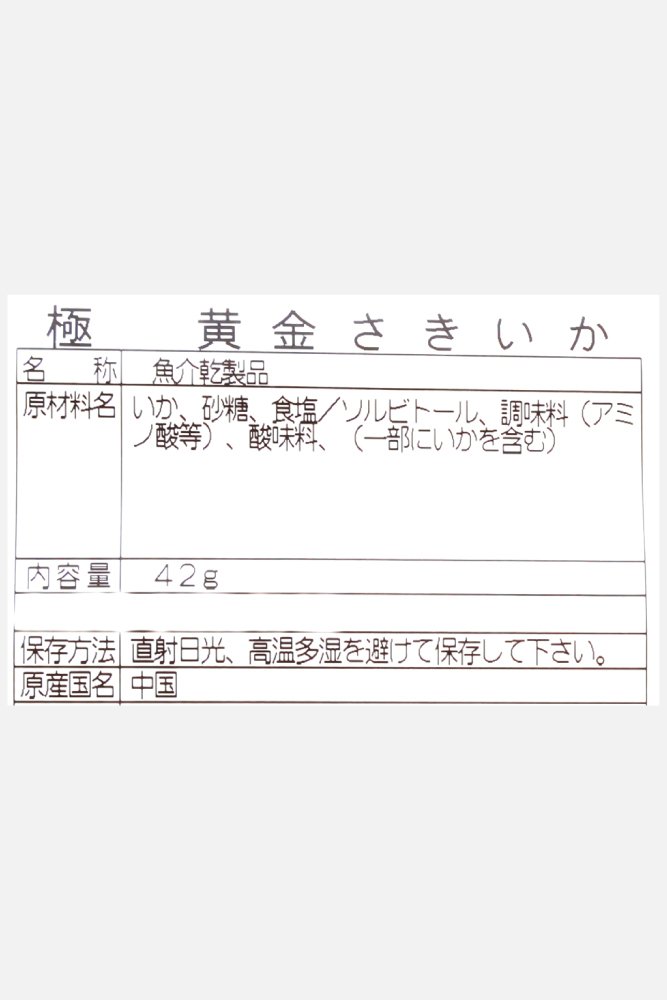 極　黄金さきいか
名　称　魚介乾製品
原材料名　いか、砂糖、食塩／ソルビトール、調味料（アミ
ノ酸等）、酸味料、（一部にいかを含む）
内容量　４２ｇ
保存方法　直射日光、高温多湿を避けて保存して下さい。
原産国名　中国